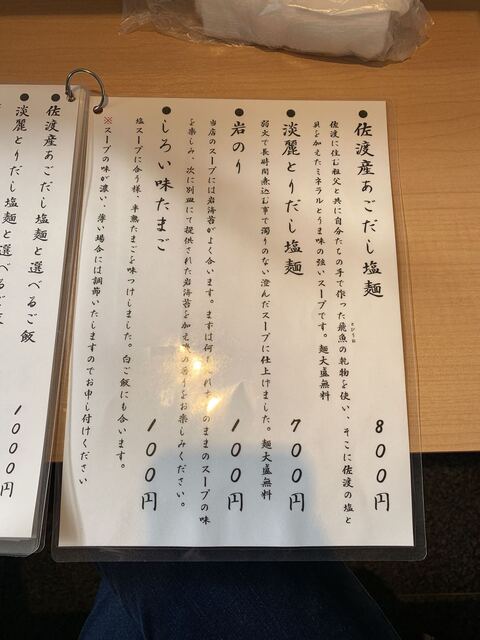 佐渡産あごだし塩麺 800円
佐渡に住む祖父と共に自分たちの手で作った飛魚の乾物を使い、そこに佐渡の塩と
貝を加えたミネラルとうま味の強いスープです。麺大盛無料
淡麗とりだし塩麺 700円
弱火で長時間煮込む事で濁りのない澄んだスープに仕上げました。麺大盛無料
岩のり 100円
当店のスープには岩海苔がよく合います。まずは何も入れずそのままのスープの味
を楽しみ、次に別皿にて提供された岩海苔を加え
をお楽しみください。
しろい味たまご 100円
塩スープに合う様、半熟たまごを味つけしました。白ご飯にも合います。
※スープの味が濃い、薄い場合には調節いたしますのでお申し付けください
佐渡産あごだし塩麺と選べるご飯 1000円
淡麗とりだし塩麺と選べるご 1000円